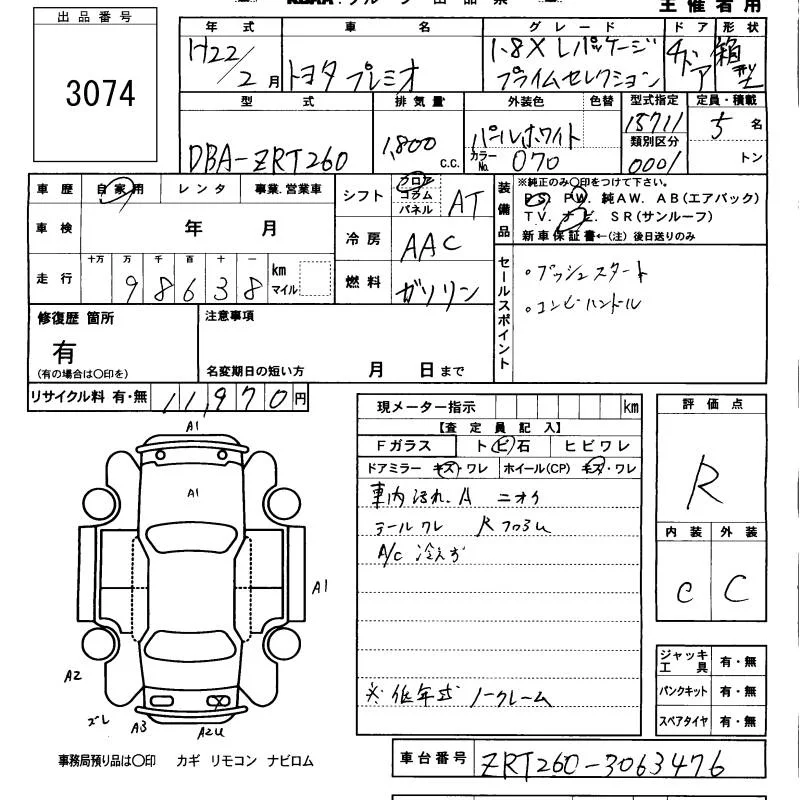 主催者用
出品番号
3074
年式 車名 グレード ドア 形状
H22/2月 トヨタ プレミオ 1.8X Lパッケージ プライムセレクション 4ドア 箱型
型式 排気量 外装色 色替 型式指定 定員・積載
DBA-ZRT260 1,800 c.c. パールホワイト カラーNo. 070 15711 5名
類別区分 0001 トン
車歴 自家用 レンタ 事業.営業車
車検 年 月
走行 十万 万 千 百 十 一
98638 km マイル
シフト フロア コラム パネル AT
冷房 AAC
燃料 ガソリン
装備品
※純正のみ〇印をつけて下さい。
PS. PW. 純AW. AB(エアバック)
TV. ナビ. SR(サンルーフ)
新車保証書←(注)後日送りのみ
セールスポイント
・プッシュスタート
・コンビハンドル
修復歴 箇所
有
(有の場合は〇印を)
注意事項
名変期日の短い方 月 日まで
リサイクル料 有・無 11,970円
現メーター指示 km
【査定員記入】
Fガラス ト ビ 石 ヒビワレ
ドアミラー キズ・ワレ ホイール(CP) キズ・ワレ
車内汚れ.A ニオイ
テールワレ
A/C 冷えず
※低年式 ノークレーム
評価点
R
内装 外装
C C
A1
A1
A1
A2
ズレ A3 A2U
X
ジャッキ工具 有・無
パンクキット 有・無
スペアタイヤ 有・無
事務局預り品は〇印 カギ リモコン ナビロム
車台番号 ZRT260-3063476